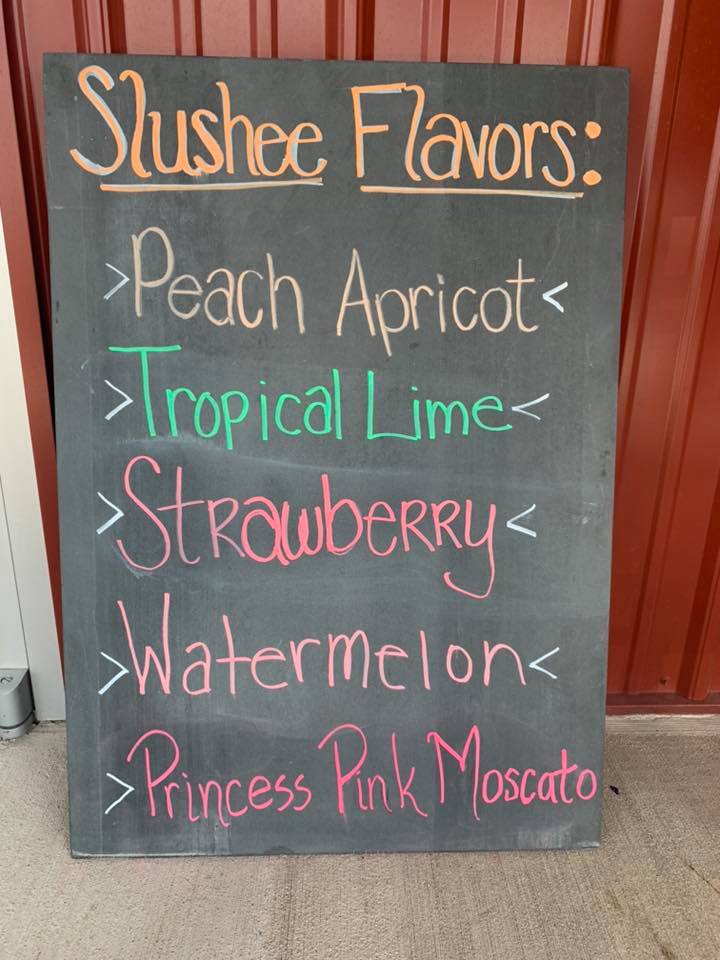 Slushee Flavors:
>Peach Apricot<
>Tropical Lime<
>Strawberry<
>Watermelon<
>Princess Pink Moscato